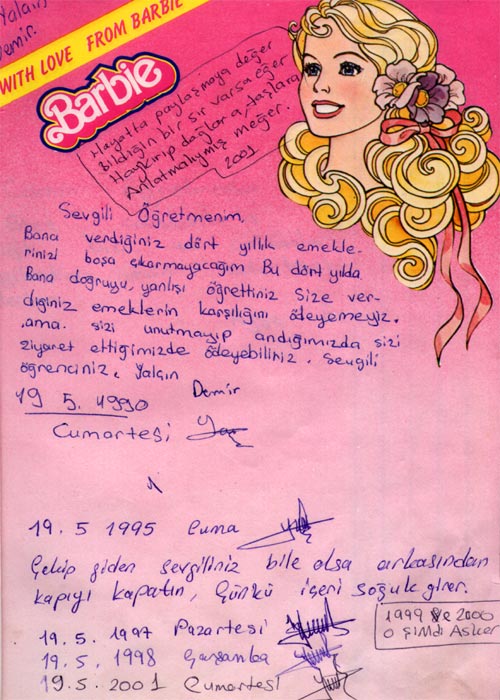 Yalçın
Demir.
WITH LOVE FROM BARBIE
Barbie
Hayatta paylaşmaya değer
Bildiğin bir sır varsa eğer
Haykırıp dağlara, taşlara
Anlatmalıymış meğer.
2001
Sevgili Öğretmenim,
Bana verdiğiniz dört yıllık emekle-
rinizi boşa çıkarmayacağım Bu dört yılda
Bana doğruyu, yanlışı öğrettiniz Size ver-
diğiniz emeklerin karşılığını ödeyemeyiz.
.ama. sizi unutmayıp andığımızda sizi
ziyaret ettiğimizde ödeyebiliriz. Sevgili
öğrenciniz, Yalçın
Demir
19 5. 1990
Cumartesi
19.5 1995 Cuma
Çekip giden sevgiliniz bile olsa arkasından
kapıyı kapatın, Çünkü içeri soğuk girer.
19.5.1997 Pazartesi
1999 ve 2000
O şimdi Asker
19.5.1998 Çarşamba
19.5.2001 Cumartesi